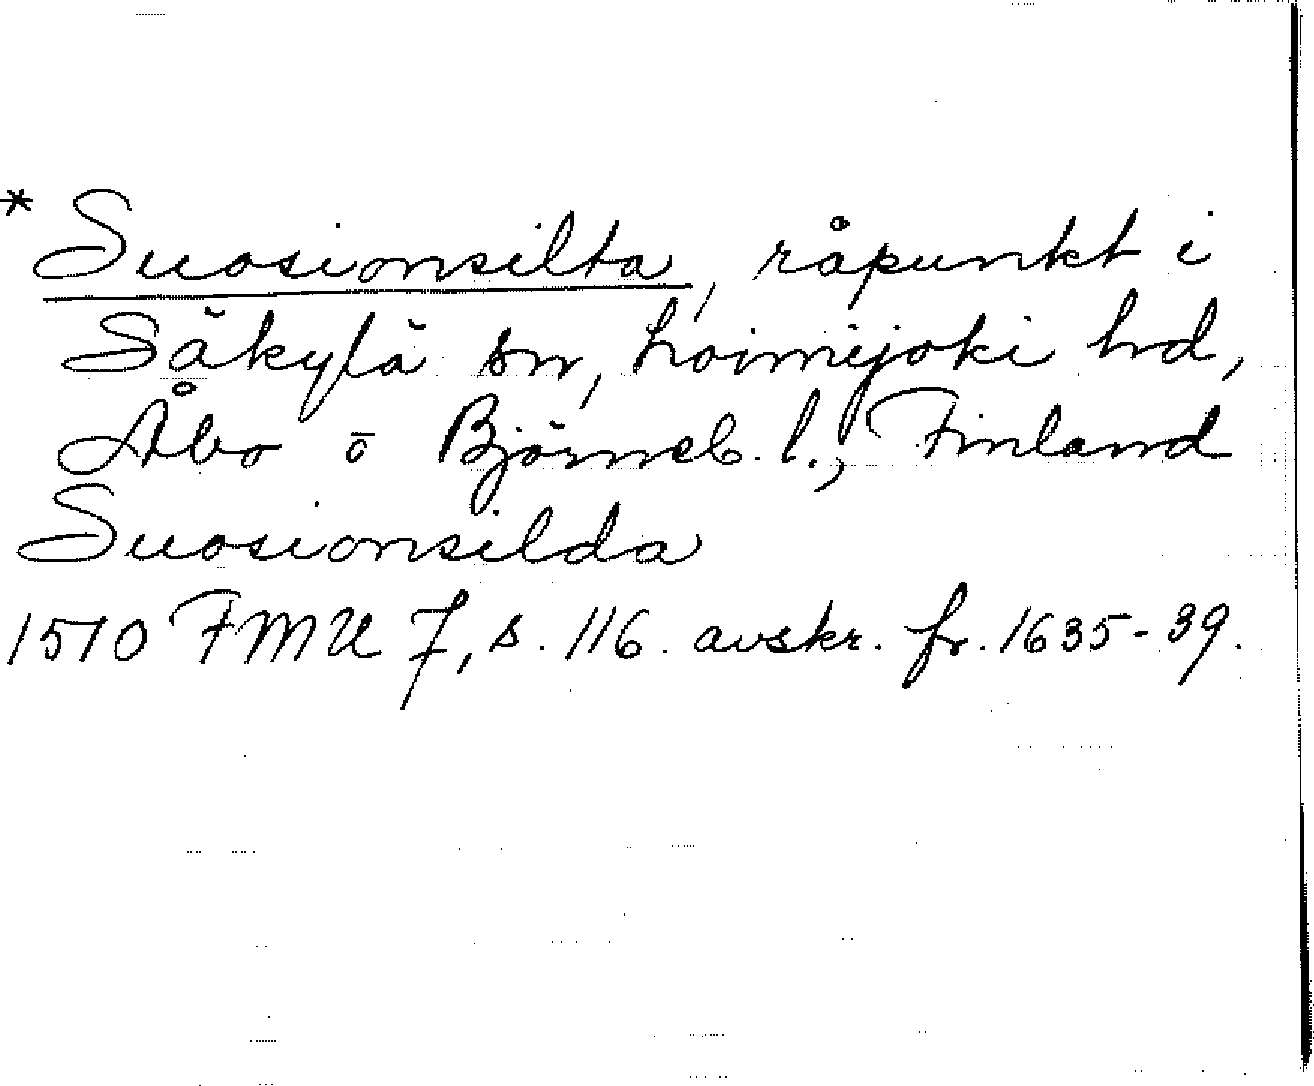 * Suosionsilta, råpunkt i
Säkylä sn, Loimijoki hd,
Åbo o Björneb. l., Finland
Suosionsilda
1510 FMU 7, s. 116. avskr. fr. 1635-39.